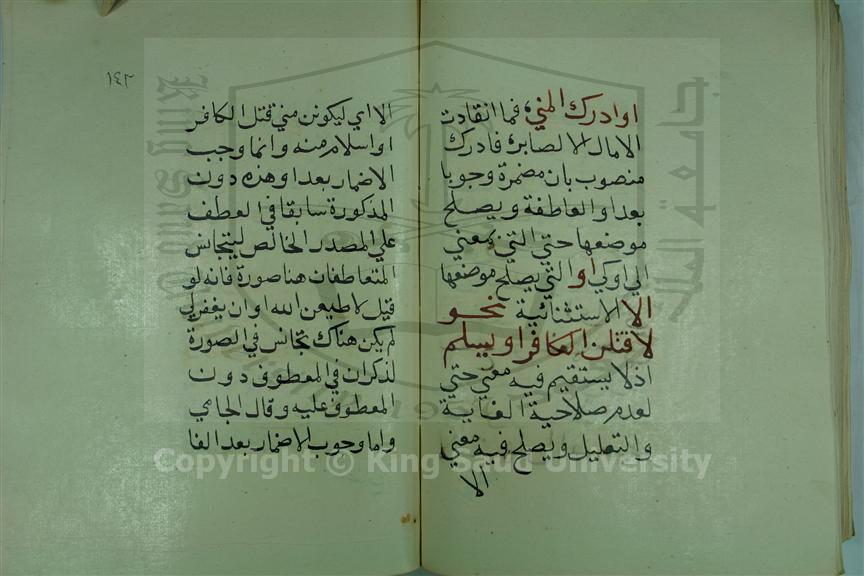 او ادرك المني؛ فما انقادت
الامال الا لصابر؛ فادرك
منصوب بان مضمرة وجوبا
بعد او العاطفة ويصلح
موضعها حتي التي بمعني
الي او كي او التي يصلح موضعها
الا الاستثنائية نحو
لاقتلن الكافر او يسلم
اذ لا يستقيم فيه معني حتي
لعدم صلاحية الغاية
والتعليل ويصلح فيه معني
الا
١٤٢
الا اي ليكونن مني قتل الكافر
او اسلام منه وانما وجب
الاضمار بعد او هذه دون
المذكورة سابقا في العطف
علي المصدر الخالص ليتجانس
المتعاطفان هنا صورة فانه لو
قيل لاطيعن الله او ان يغفر لي
لم يكن هناك تجانس في الصورة
لذكر ان في المعطوف دون
المعطوف عليه وقال الجامي
واما وجوب الاضمار بعد الفا
جامعة الملك سعود
Copyright © King Saud University